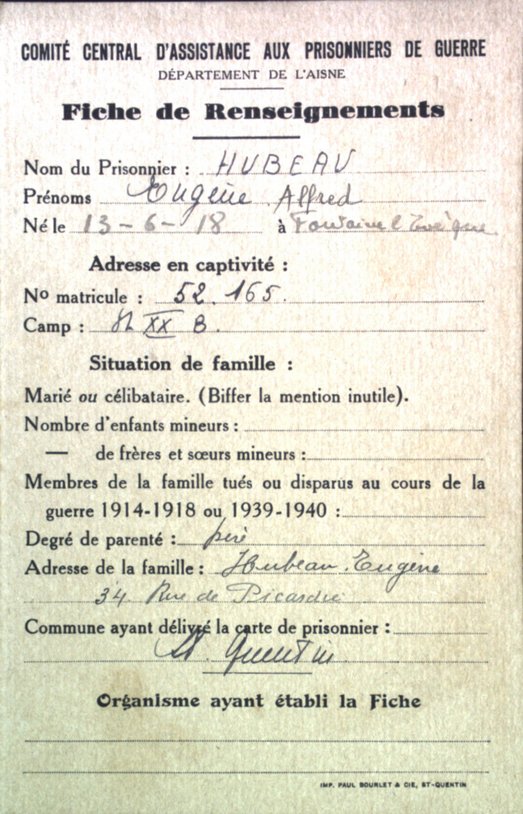 COMITÉ CENTRAL D'ASSISTANCE AUX PRISONNIERS DE GUERRE
DÉPARTEMENT DE L'AISNE
Fiche de Renseignements
Nom du Prisonnier : HUBEAU
Prénoms Eugène Alfred
Né le 13-6-18 à Fontaine l'Evêque
Adresse en captivité :
No matricule : 52.165.
Camp : XX B.
Situation de famille :
Marié ou célibataire. (Biffer la mention inutile).
Nombre d'enfants mineurs :
— de frères et sœurs mineurs :
Membres de la famille tués ou disparus au cours de la
guerre 1914-1918 ou 1939-1940 :
Degré de parenté : père
Adresse de la famille : Hubeau Eugène
34 Rue de Picardie
Commune ayant délivré la carte de prisonnier :
St. Quentin.
Organisme ayant établi la Fiche
IMP. PAUL BOURLET & CIE, ST-QUENTIN